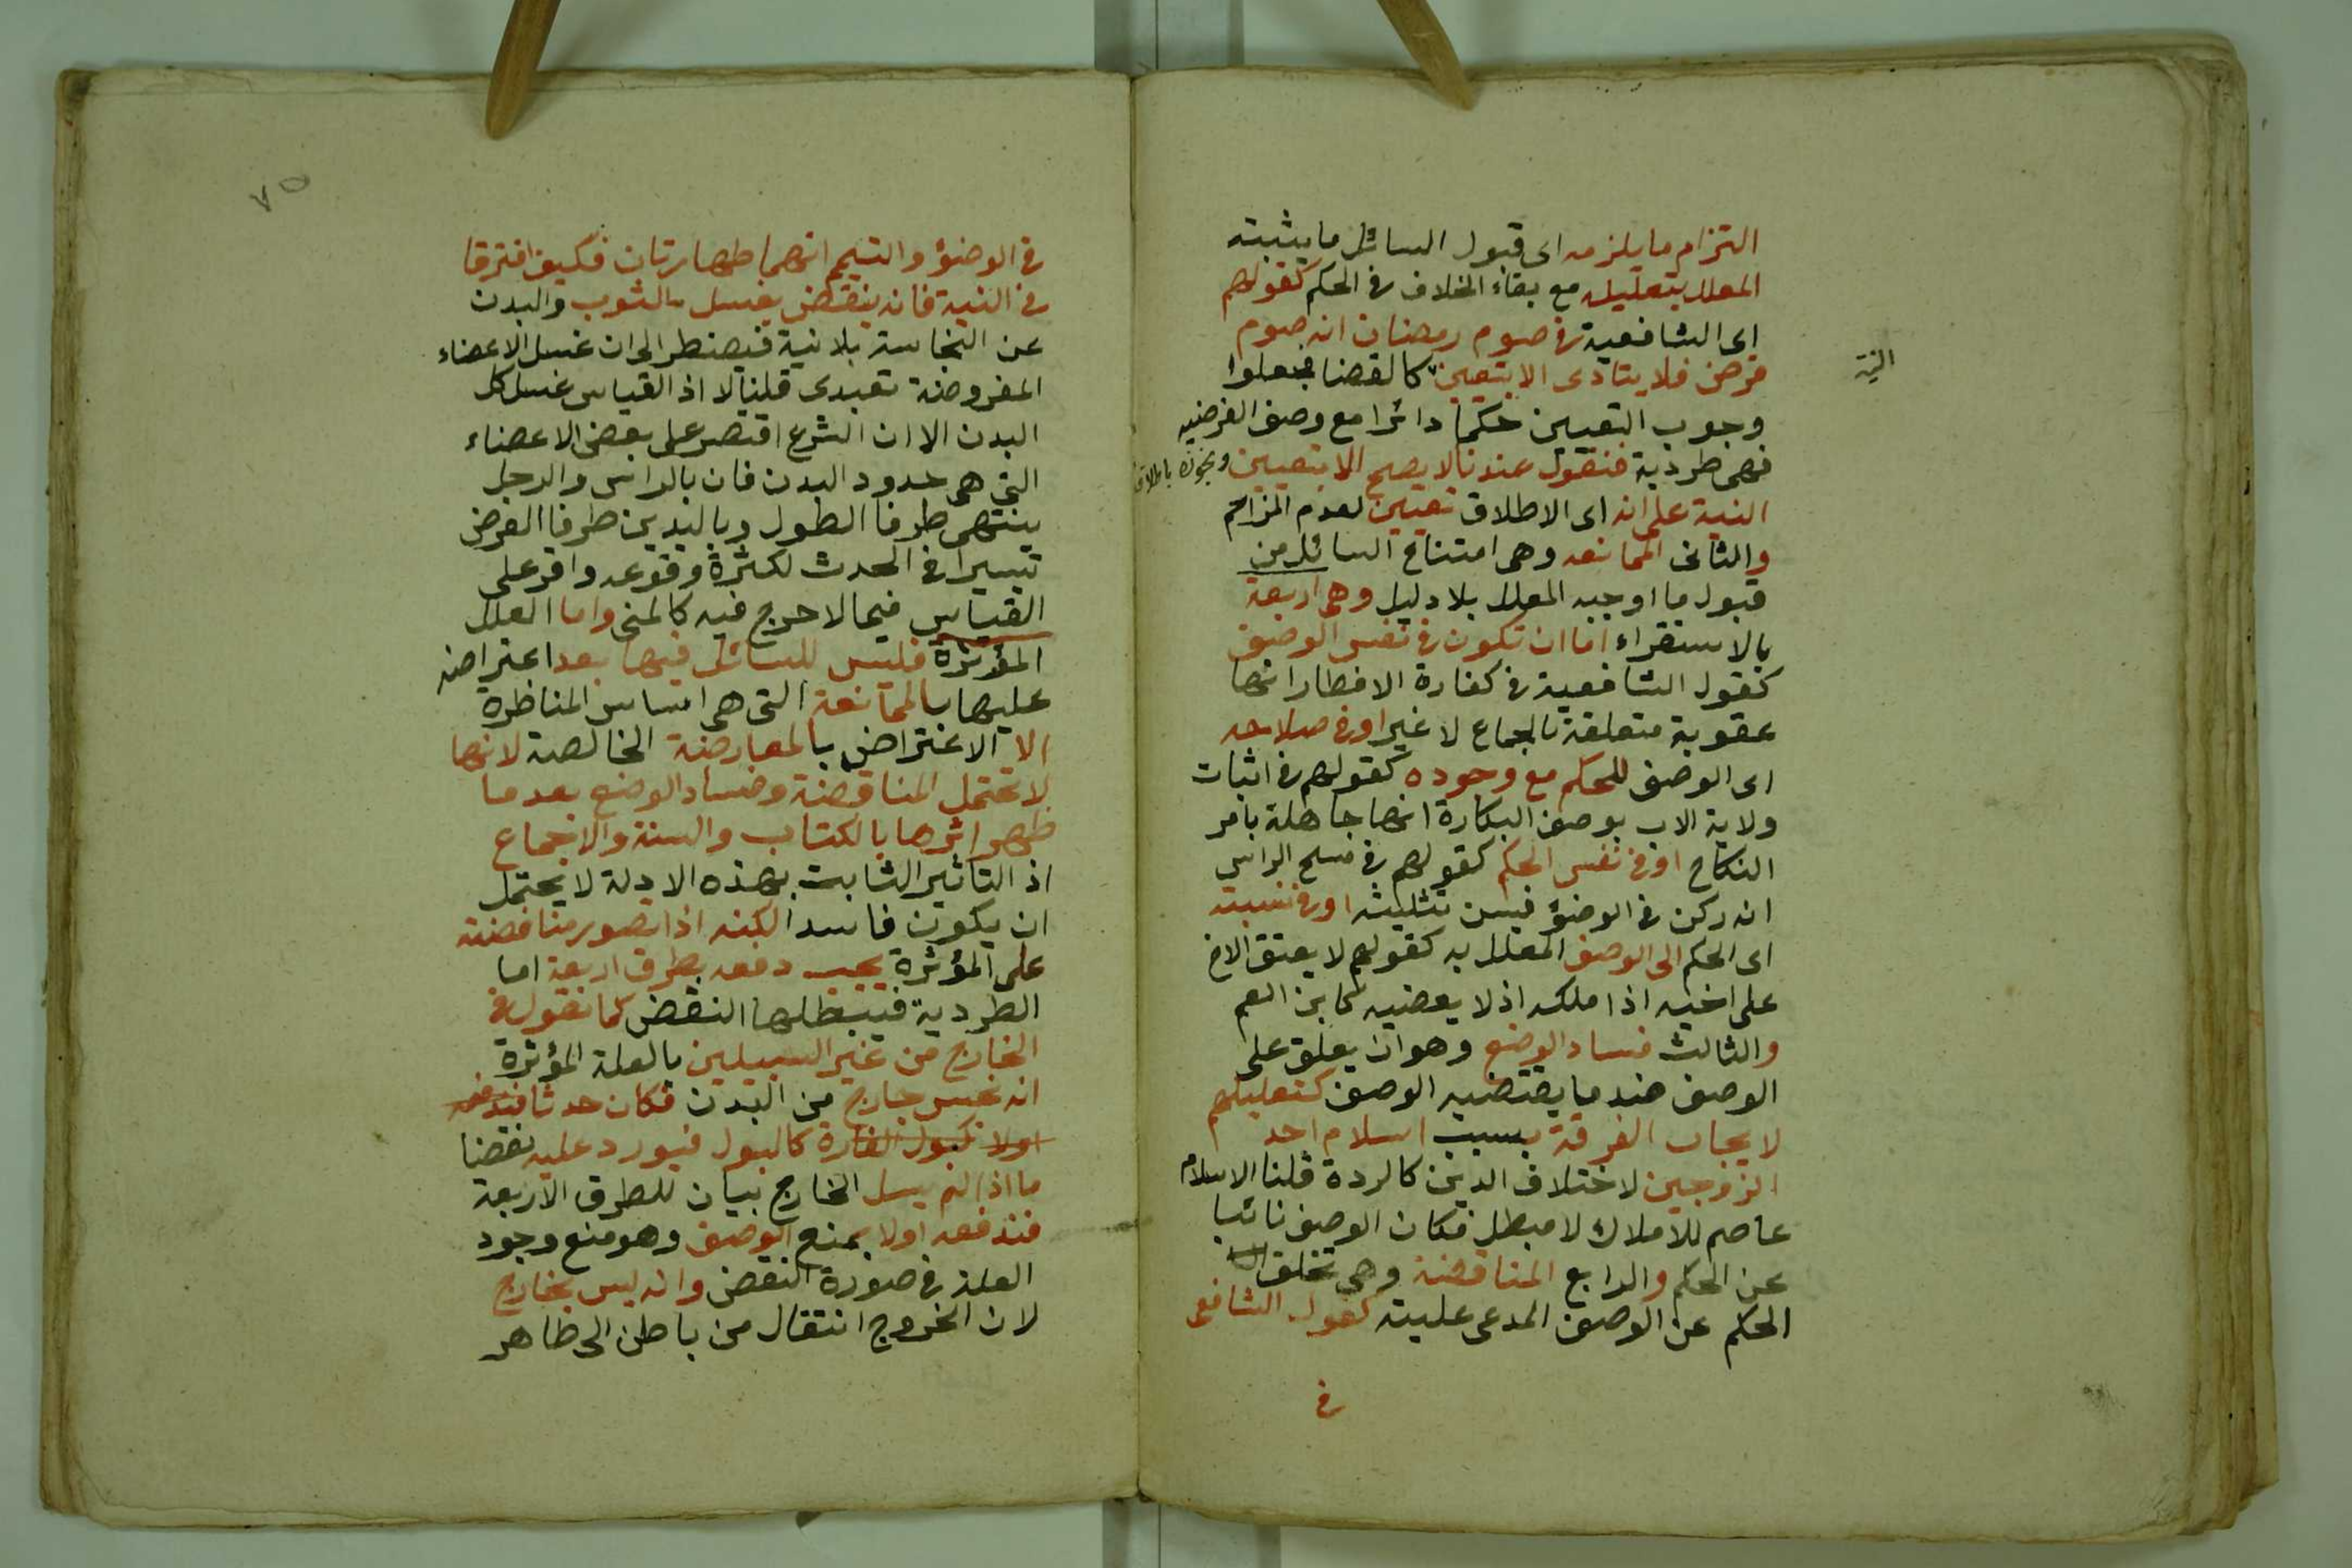 التزام ما يلزمه اى قبول السائل ما يثبته
المعلل بتعليله مع بقاء الخلاف فى الحكم كقولهم
اى الشافعية فى صوم رمضان انه صوم
فرض فلا يتادى الا بتعيين كالقضا فجعلوا
النية
وجوب التعيين حكما دائرا مع وصف الفرضيه
فهى طردية فنقول عندنا لا يصح الا بتعيين ونجوزه باطلاق
النية على انه اى الاطلاق تعيين لعدم المزاحم
والثانى الممانعه وهى امتناع السائل من
قبول ما اوجبه المعلل بلا دليل وهى اربعة
بالاستقراء اما ان تكون فى نفس الوصف
كقول الشافعية فى كفارة الافطار انها
عقوبة متعلقة بالجماع لا غير او فى صلاحه
اى الوصف للحكم مع وجوده كقولهم فى اثبات
ولاية الاب بوصف البكارة انها جاهلة بامر
النكاح او فى نفس الحكم كقولهم فى مسح الراس
انه ركن فى الوضؤ فيسن تثليثه او فى نسبته
اى الحكم الى الوصف المعلل به كقولهم لا يعتق الاخ
على اخيه اذا ملكه اذ لا بعضيه كابن العم
والثالث فساد الوضع وهو ان يعلق على
الوصف ضد ما يقتضيه الوصف كتعليلهم
لايجاب الفرقة بسبب اسلام احد
الزوجين لاختلاف الدين كالردة قلنا الاسلام
عاصم للاملاك لا مبطل فكان الوصف نائبا
عن الحكم والرابع المناقضة وهى تخلف
الحكم عن الوصف المدعى عليته كقول الشافعى
فى
٧٥
فى الوضؤ والتيمم انهما طهارتان فكيف افترقا
فى النية فانه ينقض بغسل الثوب والبدن
عن النجاسة بلا نية فيضطر الى ان غسل الاعضاء
المفروضة تعبدى قلنا لا اذ القياس غسل كل
البدن الا ان الشرع اقتصر على بعض الاعضاء
التى هى حدود البدن فان بالراس والرجل
ينتهى طرفا الطول وباليدين طرفا العرض
تيسيرا فى الحدث لكثرة وقوعه واقر على
القياس فيما لا حرج فيه كالمنى واما العلل
المؤثرة فليس للسائل فيها بعد اعتراضه
عليها بالممانعة التى هى اساس المناظرة
الا الاعتراض بالمعارضة الخالصة لانها
لا تحتمل المناقضة وفساد الوضع بعد ما
ظهر اثرها بالكتاب والسنة والاجماع
اذ التاثير الثابت بهذه الادلة لا يحتمل
ان يكون فاسدا لكنه اذا تصور مناقضة
على المؤثرة يجب دفعه بطرق اربعة اما
الطردية فيبطلها النقض كما نقول فى
الخارج من غير السبيلين بالعلة المؤثرة
انه نجس خارج من البدن فكان حدثا فندفعه
اولا كبول الفارة كالبول فيورد عليه نقضا
ما اذا لم يسل الخارج بيان للطرق الاربعة
فندفعه اولا بمنع الوصف وهو منع وجود
العلة فى صورة النقض وانه ليس بخارج
لان الخروج انتقال من باطن الى ظاهر